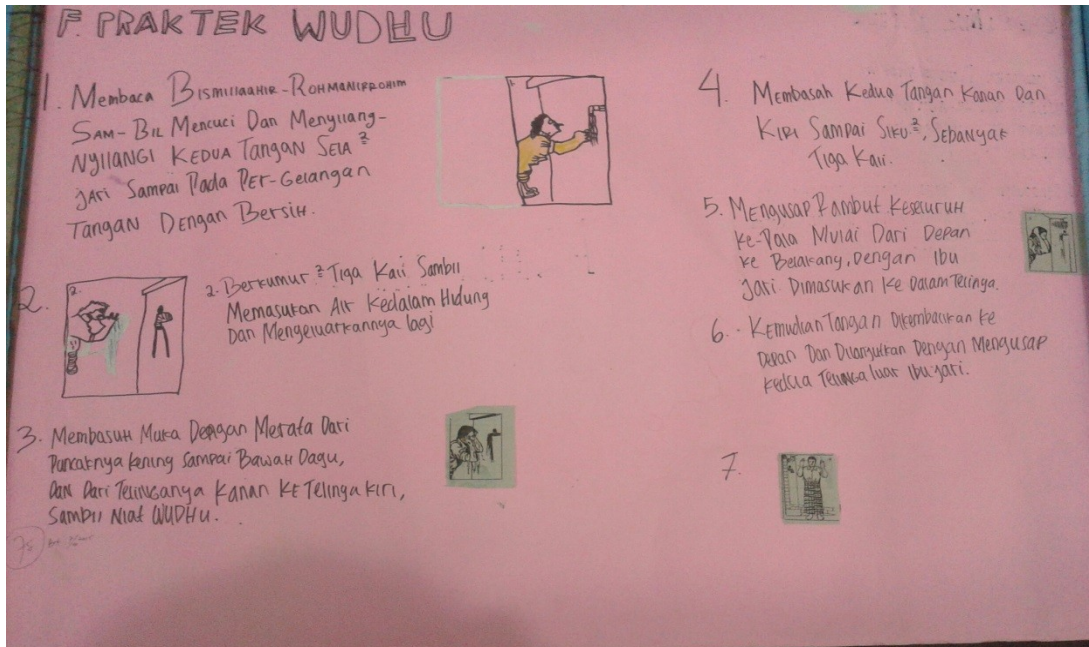 F. PRAKTEK WUDHU
1. Membaca Bismillaahir-Rohmanirrohim
Sam-Bil Mencuci Dan Menyilang-
nyilangi Kedua Tangan Sela²
jari Sampai Pada Per-Gelangan
Tangan Dengan Bersih.
2.
2. Berkumur² Tiga Kali Sambil
Memasukan Air Kedalam Hidung
Dan Mengeluarkannya lagi
3. Membasuh Muka Dengan Merata Dari
Puncaknya kening Sampai Bawah Dagu,
Dan Dari Telinganya Kanan Ke Telinga Kiri,
Sambil Niat WUDHU.
75
4. Membasah Kedua Tangan Kanan Dan
Kiri Sampai Siku², Sebanyak
Tiga Kali.
5. Mengusap Rambut Keseluruh
Ke-Pala Mulai Dari Depan
Ke Belakang, Dengan Ibu
Jari Dimasukan Ke Dalam Telinga.
6. Kemudian Tangan Dikembalikan Ke
Depan Dan Dilanjutkan Dengan Mengusap
Kedua Telinga luar Ibu jari.
7.